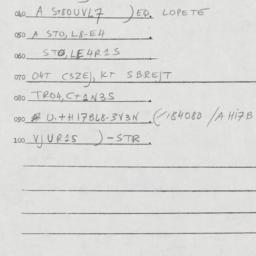 040 A ST80UVL7 ) EQ. LOPETE
050 A STO, L8-E4
060 STO, LE4R1S
070 O4T (SZEJ, KT SBREJT
080 TRO4, C+1N3S
090 U.+H17BL8-3V3N . (/184080 /A H17B
100 VJUR1S ) - STR